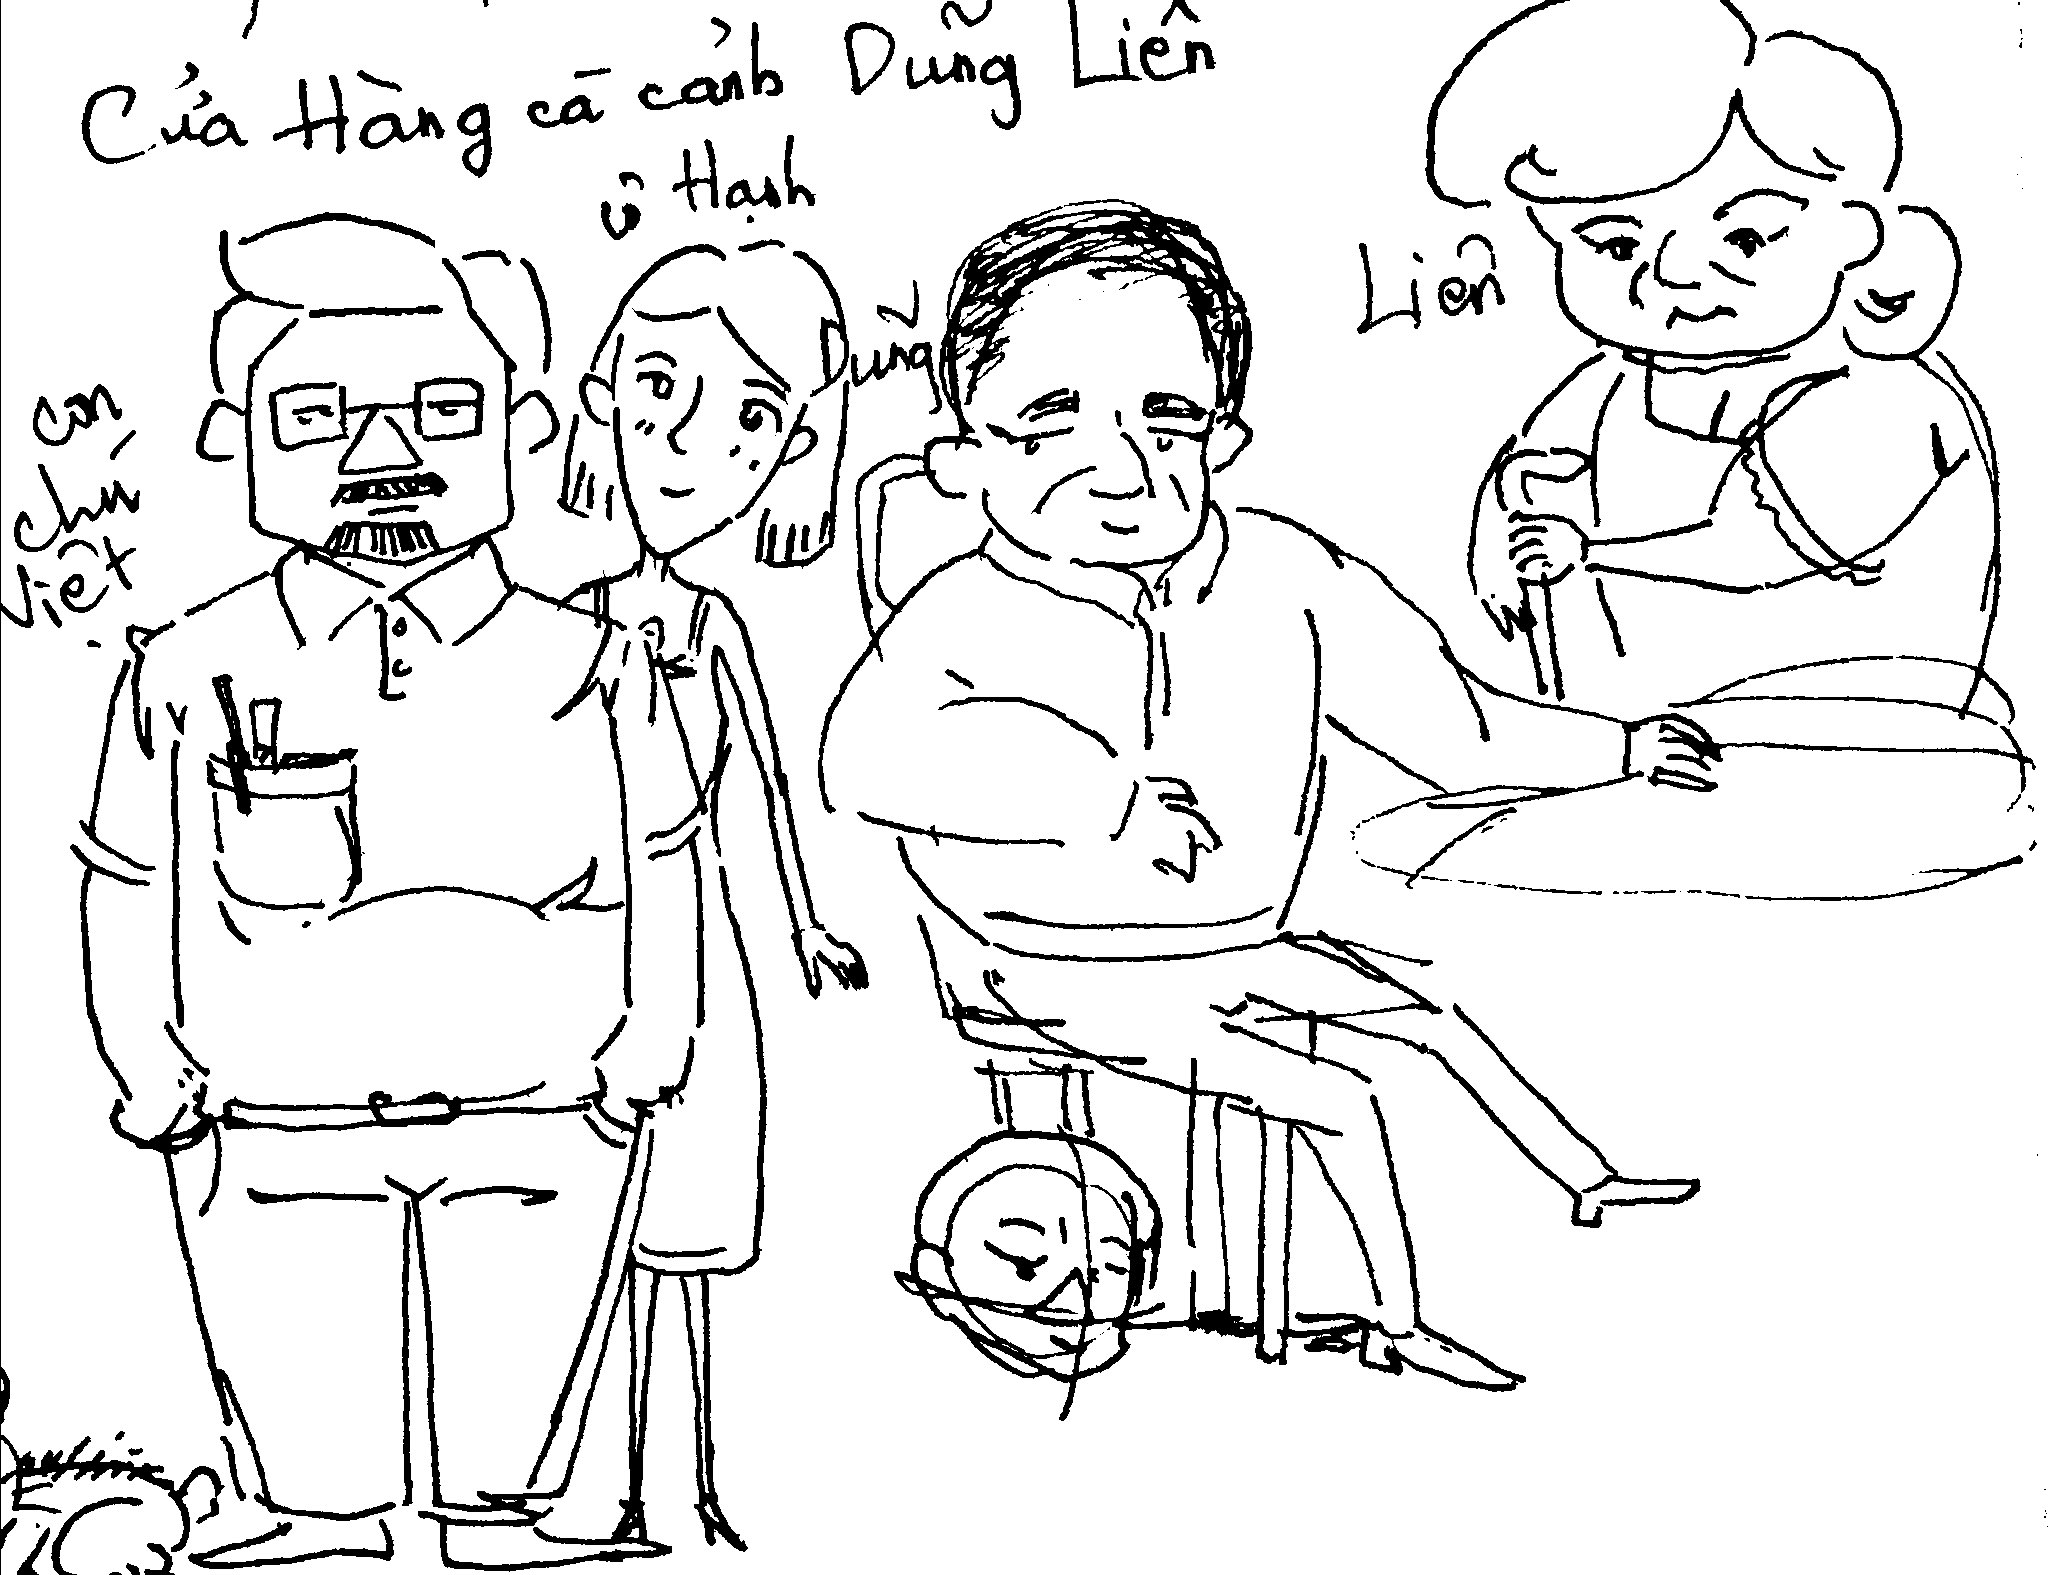 Cửa Hàng cá cảnh Dũng Liên
Hạnh
Dũng
Liên
con
chú
Việt